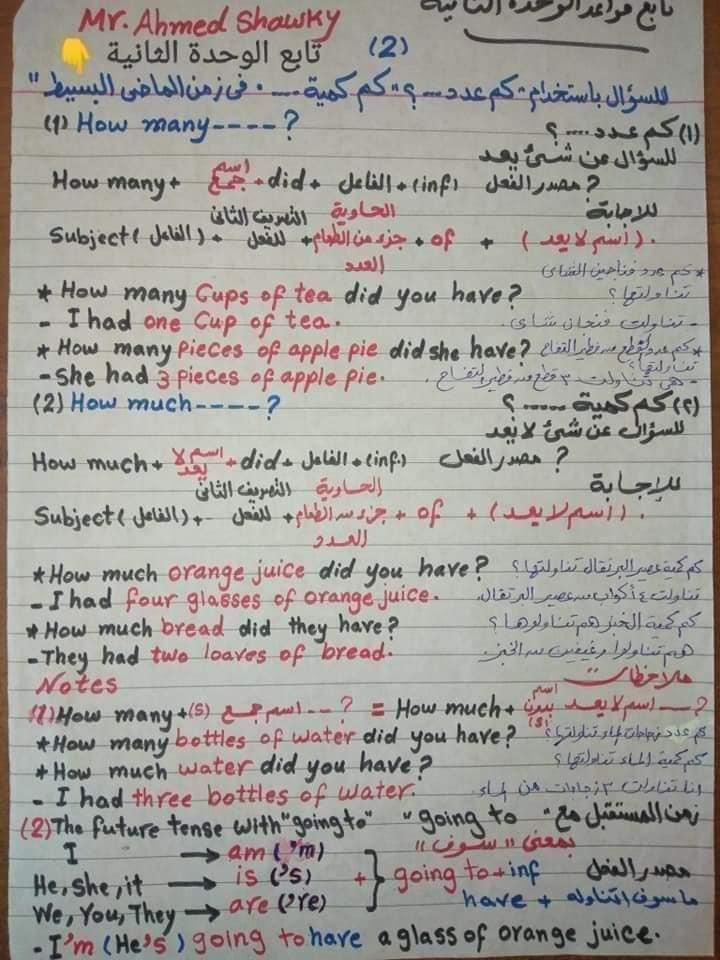 تابع قواعد الوحدة الثانية
Mr. Ahmed Shawky
تابع الوحدة الثانية (2)
للسؤال باستخدام "كم عدد...؟" "كم كمية.... فى زمن الماضى البسيط"
(1) How many----? (1) كم عدد....؟
للسؤال عن شئ يعد
How many + اسم جمع + did + الفاعل + (inf) مصدر الفعل ?
للإجابة
Subject (الفاعل) + التصريف الثانى للفعل + العدد الحاوية جزء من الطعام + of + (اسم لا يعد).
* How many Cups of tea did you have? * كم عدد فناجين الشاى تناولتها؟
- I had one Cup of tea. - تناولت فنجان شاى.
* How many pieces of apple pie did she have? * كم عدد قطع من فطير التفاح تناولتها؟
- She had 3 pieces of apple pie. - هى تناولت ٣ قطع من فطير التفاح.
(2) How much----? (٢) كم كمية.....؟
للسؤال عن شئ لا يعد
How much + اسم لا يعد + did + الفاعل + (inf.) مصدر الفعل ?
للإجابة
Subject (الفاعل) + التصريف الثانى للفعل + العدد الحاوية جزء من الطعام + of + (اسم لا يعد).
* How much orange juice did you have? كم كمية عصير البرتقال تناولتها؟
- I had four glasses of orange juice. تناولت ٤ أكواب من عصير البرتقال.
* How much bread did they have? كم كمية الخبز هم تناولوها؟
- They had two loaves of bread. هم تناولوا رغيفين من الخبز.
Notes ملاحظات
(1) How many + (s) اسم جمع --? = How much + اسم لا يعد بدون (s) ---?
* How many bottles of water did you have? كم عدد زجاجات الماء تناولتها؟
* How much water did you have? كم كمية الماء تناولتها؟
- I had three bottles of water. انا تناولت ٣ زجاجات من الماء.
(2) The future tense with "going to" زمن المستقبل مع "going to"
بمعنى "سوف"
I → am ('m)
He, She, it → is ('s) + going to + inf مصدر الفعل
We, You, They → are ('re) have + ما سوف اتناوله
- I'm (He's) going to have a glass of orange juice.